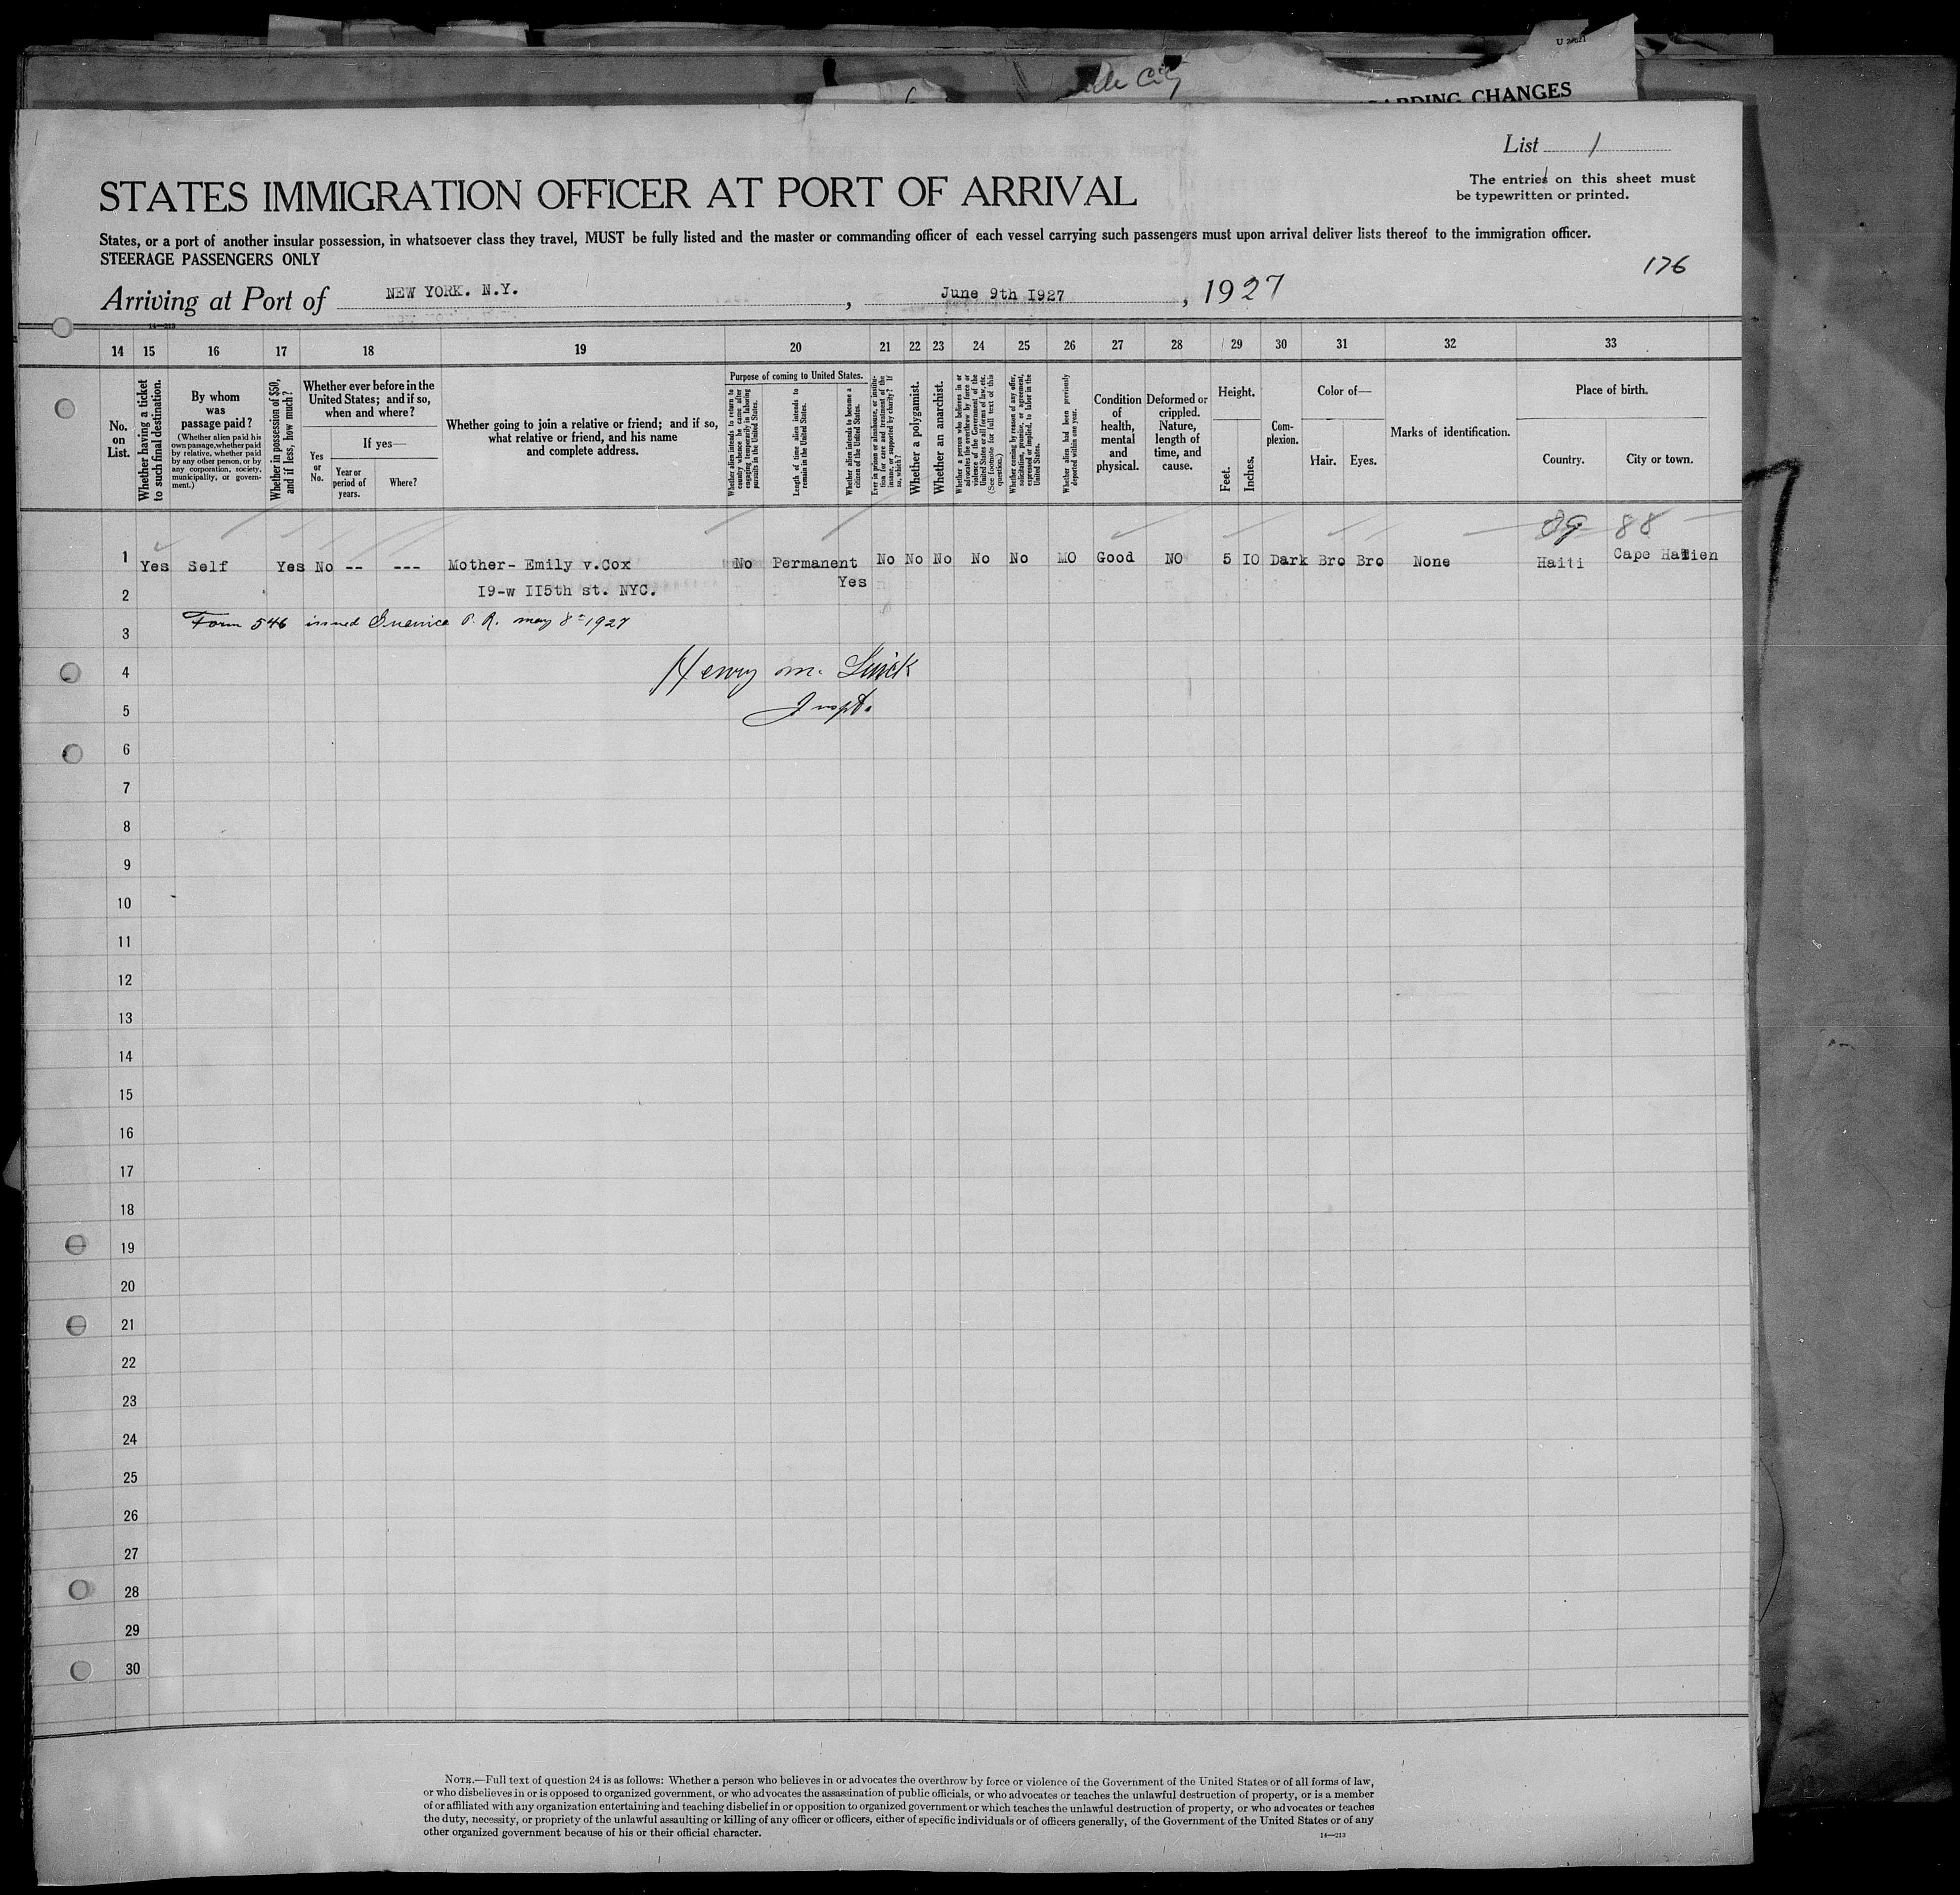 U 2/621
de City
ARDING CHANGES
List 1
The entries on this sheet must
be typewritten or printed.
STATES IMMIGRATION OFFICER AT PORT OF ARRIVAL
States, or a port of another insular possession, in whatsoever class they travel, MUST be fully listed and the master or commanding officer of each vessel carrying such passengers must upon arrival deliver lists thereof to the immigration officer.
STEERAGE PASSENGERS ONLY
176
Arriving at Port of NEW YORK. N.Y. , June 9th I927 , 1927
14—213
14 15 16 17 18 19 20 21 22 23 24 25 26 27 28 29 30 31 32 33
No. on List.
Whether having a ticket to such final destination.
By whom was passage paid?
(Whether alien paid his own passage, whether paid by relative, whether paid by any other person, or by any corporation, society, municipality, or government.)
Whether in possession of $50, and if less, how much?
Whether ever before in the United States; and if so, when and where?
Yes or No.
If yes—
Year or period of years.
Where?
Whether going to join a relative or friend; and if so, what relative or friend, and his name and complete address.
Purpose of coming to United States.
Whether alien intends to return to country whence he came after engaging temporarily in laboring pursuits in the United States.
Length of time alien intends to remain in the United States.
Whether alien intends to become a citizen of the United States.
Ever in prison or almshouse, or institution for care and treatment of the insane, or supported by charity? If so, which?
Whether a polygamist.
Whether an anarchist.
Whether a person who believes in or advocates the overthrow by force or violence of the Government of the United States or all forms of law, etc. (See footnote for full text of this question.)
Whether coming by reason of any offer, solicitation, promise, or agreement, expressed or implied, to labor in the United States.
Whether alien had been previously deported within one year.
Condition of health, mental and physical.
Deformed or crippled. Nature, length of time, and cause.
Height.
Feet.
Inches.
Complexion.
Color of—
Hair. Eyes.
Marks of identification.
Place of birth.
Country. City or town.
89 88
1 Yes Self Yes No -- --- Mother- Emily v.Cox No Permanent No No No No No MO Good NO 5 IO Dark Bro Bro None Haiti Cape Hatien
2 I9-w II5th st. NYC. Yes
3 Form 546 issued Guanica P. R. may 8th 1927
4 Henry m. Linck
5 Inspt.
6
7
8
9
10
11
12
13
14
15
16
17
18
19
20
21
22
23
24
25
26
27
28
29
30
NOTE.—Full text of question 24 is as follows: Whether a person who believes in or advocates the overthrow by force or violence of the Government of the United States or of all forms of law,
or who disbelieves in or is opposed to organized government, or who advocates the assassination of public officials, or who advocates or teaches the unlawful destruction of property, or is a member
of or affiliated with any organization entertaining and teaching disbelief in or opposition to organized government or which teaches the unlawful destruction of property, or who advocates or teaches
the duty, necessity, or propriety of the unlawful assaulting or killing of any officer or officers, either of specific individuals or of officers generally, of the Government of the United States or of any
other organized government because of his or their official character.
14—213